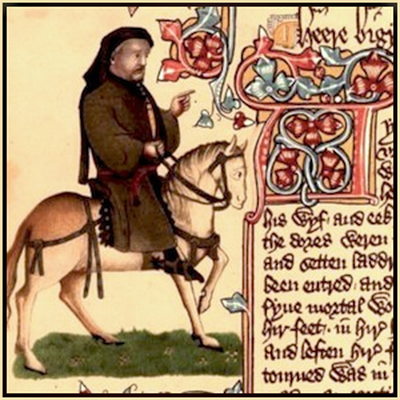 Heere bigi
his wyf· and eek
the dores weren
and setten laddr
been entred· and
fyue mortal wo
hir feet· in hir h
and leften hir f
tourned was in